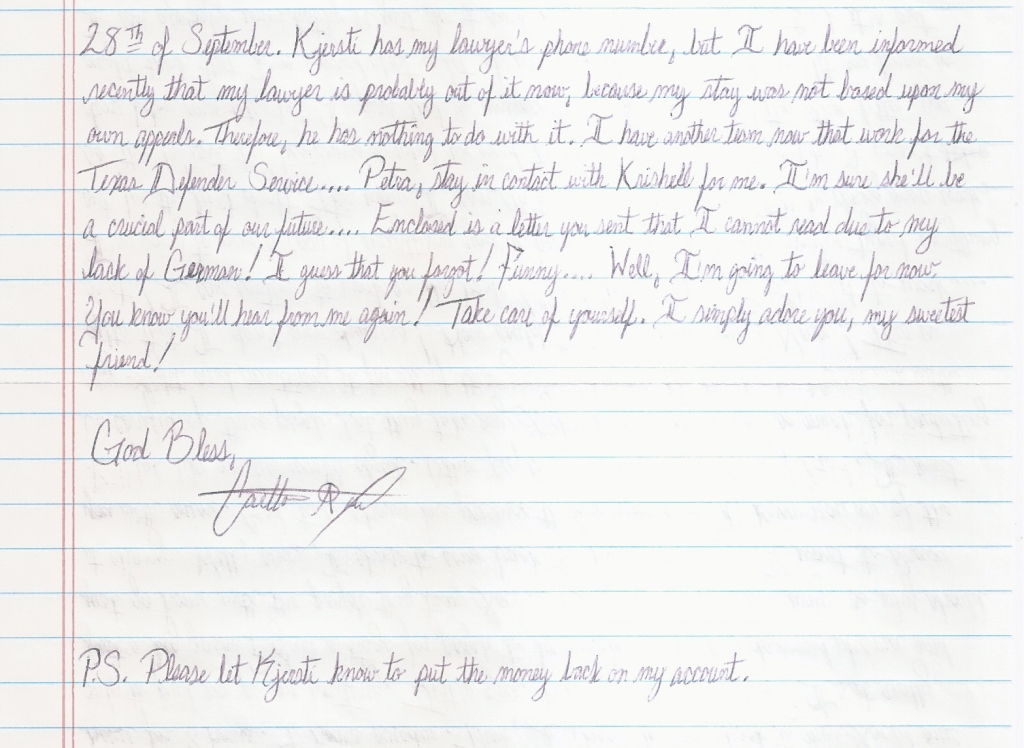 28TH of September. Kjersti has my lawyer's phone number, but I have been informed
recently that my lawyer is probably out of it now, because my stay was not based upon my
own appeals. Therefore, he has nothing to do with it. I have another team now that work for the
Texas Defender Service.... Petra, stay in contact with Krishell for me. I'm sure she'll be
a crucial part of our future.... Enclosed is a letter you sent that I cannot read due to my
lack of German! I guess that you forgot! Funny.... Well, I'm going to leave for now.
You know you'll hear from me again! Take care of yourself. I simply adore you, my sweetest
friend!
God Bless,
P.S. Please let Kjersti know to put the money back on my account.